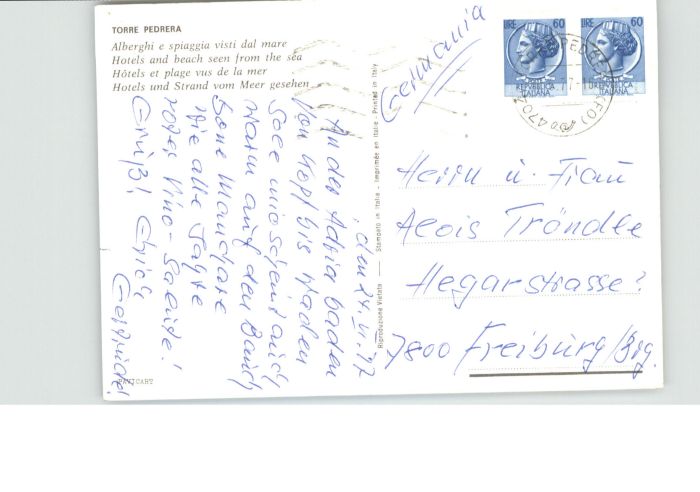 TORRE PEDRERA
Alberghi e spiaggia visti dal mare
Hotels and beach seen from the sea
Hôtels et plage vus de la mer
Hotels und Strand vom Meer gesehen
Germania
LIRE 60
REPVBBLICA
ITALIANA
LIRE 60
REPVBBLICA
ITALIANA
den 24. 77
An der Adria baden
von Kopf bis Waden
warm auf den Bauch
wie alle Tage
roter Vino-
Grüß! Euich
Gertrude
Riproduzione Vietata Stampato in Italia - Imprimée en Italie - Printed in Italy
Herrn u. Frau
Alois Tröndle
Hegarstrasse
7800 Freiburg/Brg.